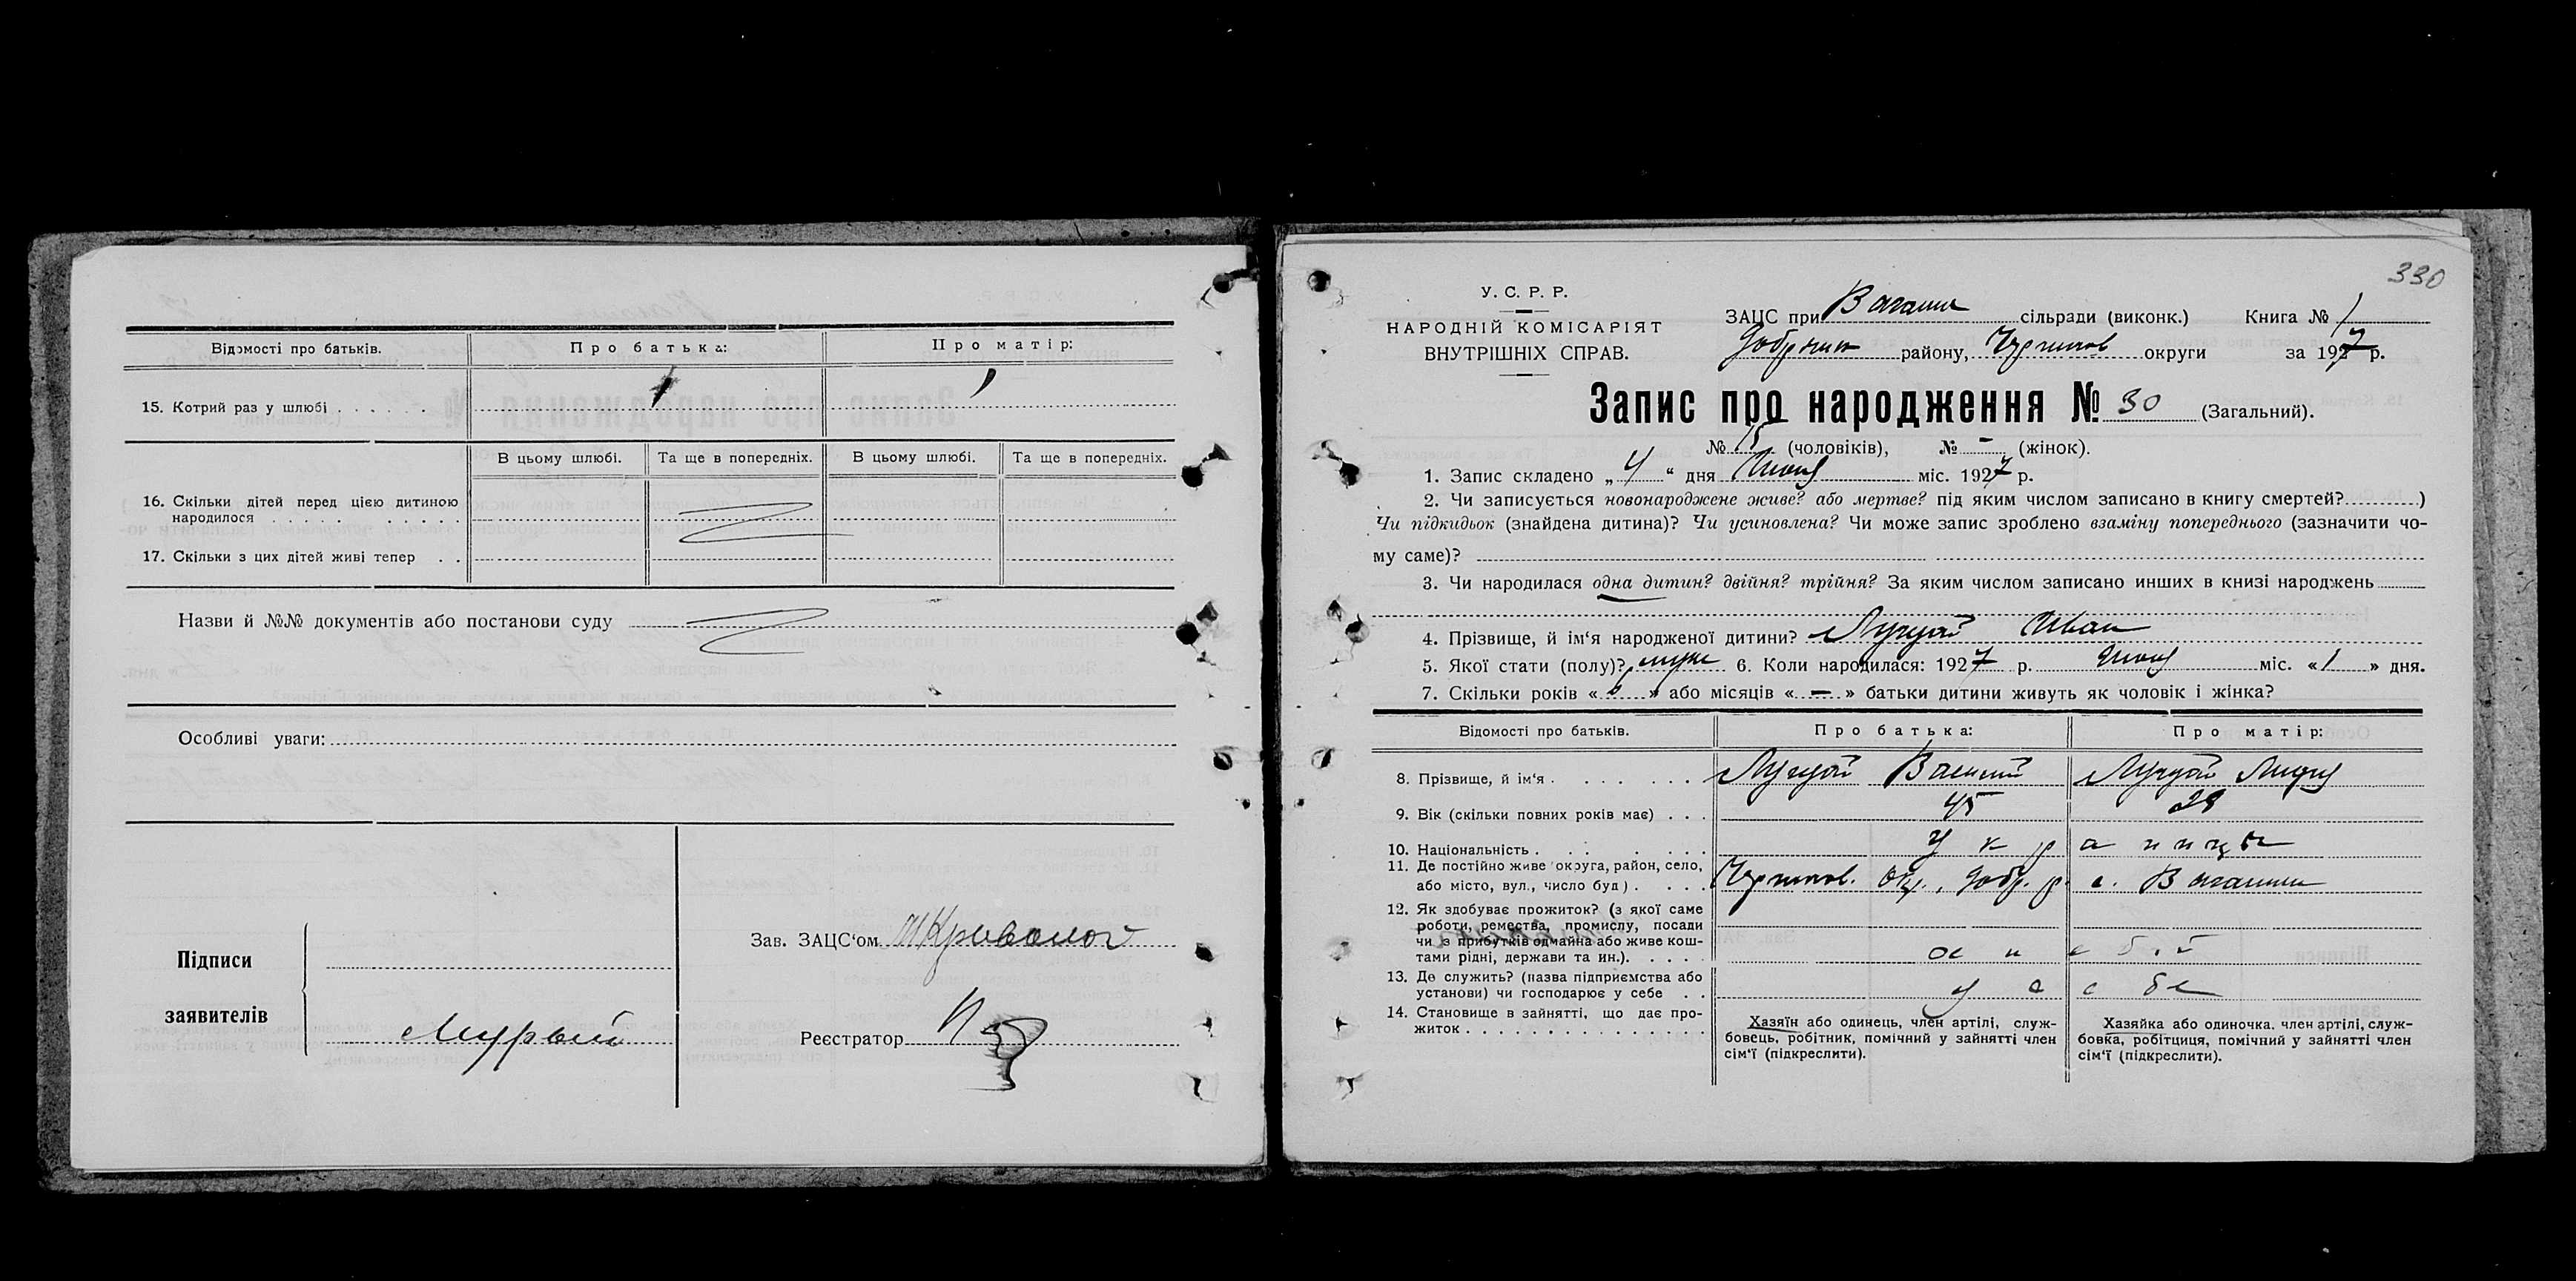 Відомості про батьків.
Про батька:
Про матір:
15. Котрий раз у шлюбі . . . . . .
1
1
В цьому шлюбі.
Та ще в попередніх.
В цьому шлюбі.
Та ще в попередніх.
16. Скільки дітей перед цією дитиною
народилося . . . . . . . . . .
17. Скільки з цих дітей живі тепер . .
Назви й №№ документів або постанови суду
Особливі уваги:
Підписи
заявителів
Зав. ЗАЦС'ом
Реєстратор
330
У. С. Р. Р.
НАРОДНІЙ КОМІСАРІЯТ
ВНУТРІШНІХ СПРАВ.
ЗАЦС при сільради (виконк.) Книга № 1
району, округи за 1927 р.
Запис про народження № 30 (Загальний).
№ 15 (чоловіків), № – (жінок).
1. Запис складено „ 4 “ дня міс. 1927 р.
2. Чи записується новонароджене живе? або мертве? під яким числом записано в книгу смертей? )
Чи підкидьок (знайдена дитина)? Чи усиновлена? Чи може запис зроблено взаміну попереднього (зазначити чо-
му саме)?
3. Чи народилася одна дитин? двійня? трійня? За яким числом записано инших в книзі народжень
4. Прізвище, й ім'я народженої дитини? Иван
5. Якої стати (полу)? муж 6. Коли народилася: 1927 р. міс. « 1 » дня.
7. Скільки років « » або місяців « – » батьки дитини живуть як чоловік і жінка?
Відомості про батьків.
Про батька:
Про матір:
8. Прізвище, й ім'я . . . . . . . Василий
9. Вік (скільки повних років має) . . . 45 28
10. Національність . . . . . . . украинцы
11. Де постійно живе округа, район, село,
або місто, вул., число буд) . . . . Окр., Добр. р. с.
12. Як здобуває прожиток? (з якої саме
роботи, ремества, промислу, посади
чи з прибутків одмайна або живе кош-
тами рідні, держави та ин.). . . . .
13. Де служить? (назва підприємства або
установи) чи господарює у себе . . у себе
14. Становище в зайнятті, що дає про-
житок . . . . . . . . . . . . . . .
Хазяїн або одинець, член артілі, служ-
бовець, робітник, помічний у зайнятті член
сім'ї (підкреслити).
Хазяйка або одиночка, член артілі, служ-
бовка, робітциця, помічний у зайнятті член
сім'ї (підкреслити).